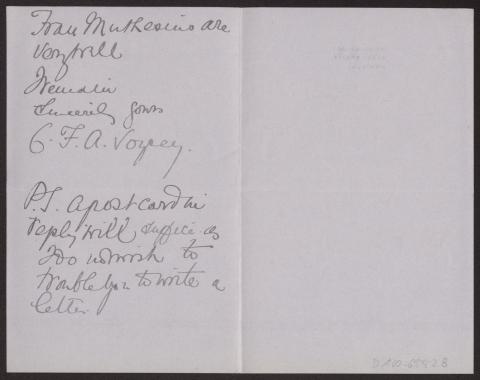 Frau Muthesius are
very well
I remain
Sincerely yours
C. F. A. Voysey.
P.S. a post card in
reply will suffice as
I do not wish to
trouble you to write a
letter.